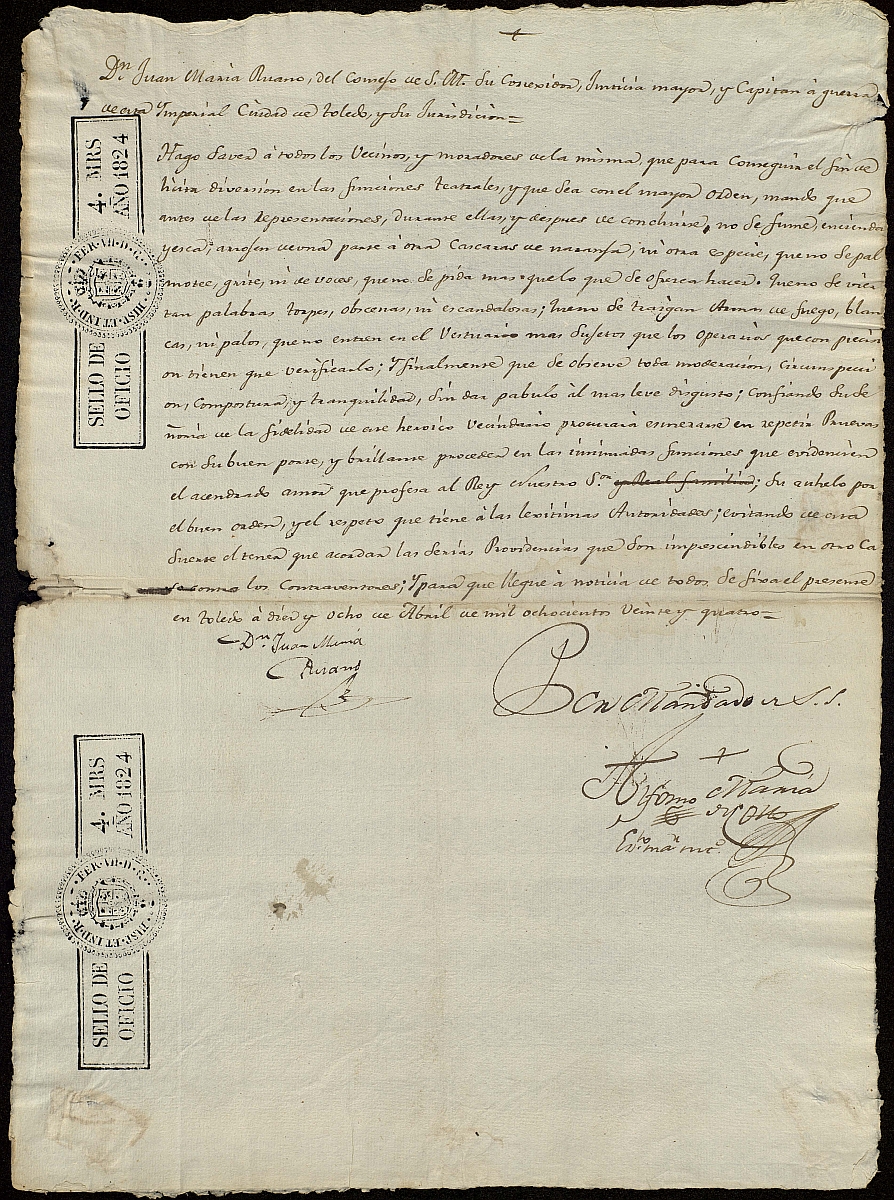 Dn. Juan Maria Ruano, del Consejo de S. M. Su Correxidor, Justicia mayor, y Capitan à guerra
de esta Ymperial Ciudad de Toledo, y Su Jurisdicion=
Hago Saver à todos los Vecinos, y moradores de la misma, que para conseguir el fin de
licita diversion en las funciones teatrales, y que sea con el mayor orden, mando que
antes de las representaciones, durante ellas, y despues de concluirse, no se fume, encienda
yesca, arrojen de una parte à otra Cascaras de naranja, ni otra especie, que no se pal
motee, grite, ni de voces, que no se pida mas que lo que se ofrezca hacer. Que no se vier
tan palabras torpes, obscenas, ni escandalosas; Que no se traigan Armas de fuego, blan
cas, ni palos, que no entren en el Vestuario mas Sujetos que los Operarios que con precisi
on tienen que verificarlo; Y finalmente que se observe toda moderacion, Circunspecci
on, Compostura, y tranquilidad, Sin dar pabulo àl mas leve disgusto; Confiando Su Se
ñoria de la fidelidad de este heroico Vecindario procurará esmerarse en repetir Pruevas
con Su buen porte, y brillante proceder en las insinuadas funciones que evidencien
el acendrado amor que profesa al Rey Nuestro S.or y Real familia; Su anhelo por
el buen orden, y el respeto que tiene à las lexitimas Autoridades; evitando de esta
Suerte el tener que acordar las Serias Providencias que Son imprescindibles en otro Ca
so contra los Contraventores; Y para que llegue à noticia de todos se fixa el presente
en Toledo à diez y ocho de Abril de mil ochocientos Veinte y quatro=
Dn. Juan Maria
Ruano
Por Mandado de S. S.
Alfonso Maria
de Cotto
SELLO DE OFICIO
4. MRS
AÑO 1824
FER·VII·D·G·
HISP·ET·IND·R·
SELLO DE OFICIO
4. MRS
AÑO 1824
FER·VII·D·G·
HISP·ET·IND·R·